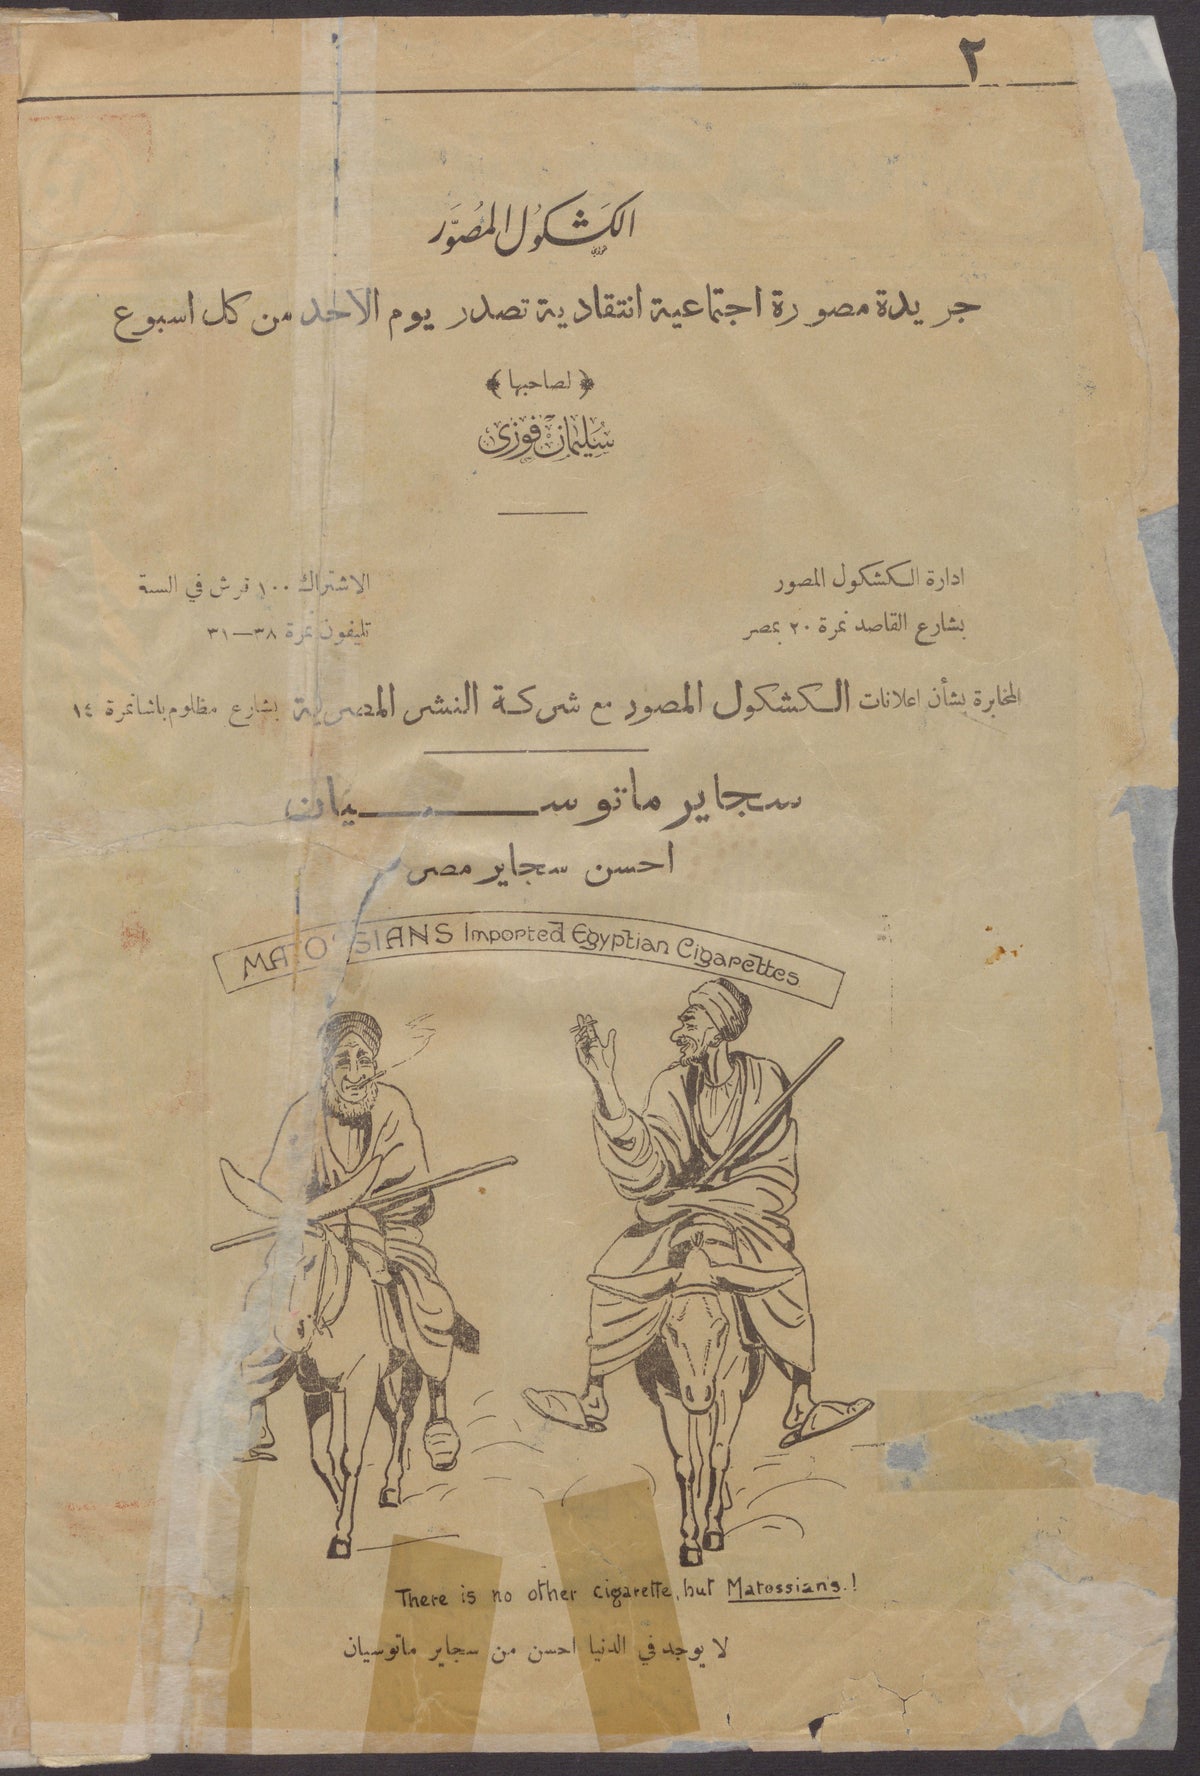 ٢
الكَشكوُل المُصوَّر
جريدة مصورة اجتماعية انتقادية تصدر يوم الاحد من كل اسبوع
﴿ لصاحبها ﴾
سُليمان فوزى
ادارة الكشكول المصور
الاشتراك ١٠٠ قرش في السنة
بشارع القاصد نمرة ٢٠ بمصر
تليفون نمرة ٣٨—٣١
المخابرة بشأن اعلانات الكشكول المصور مع شركة النشر المصرية بشارع مظلوم باشا نمرة ١٤
سجاير ماتوسيان
احسن سجاير مصر
MATOSSIANS Imported Egyptian Cigarettes
There is no other cigarette, but Matossian's.!
لا يوجد في الدنيا احسن من سجاير ماتوسيان